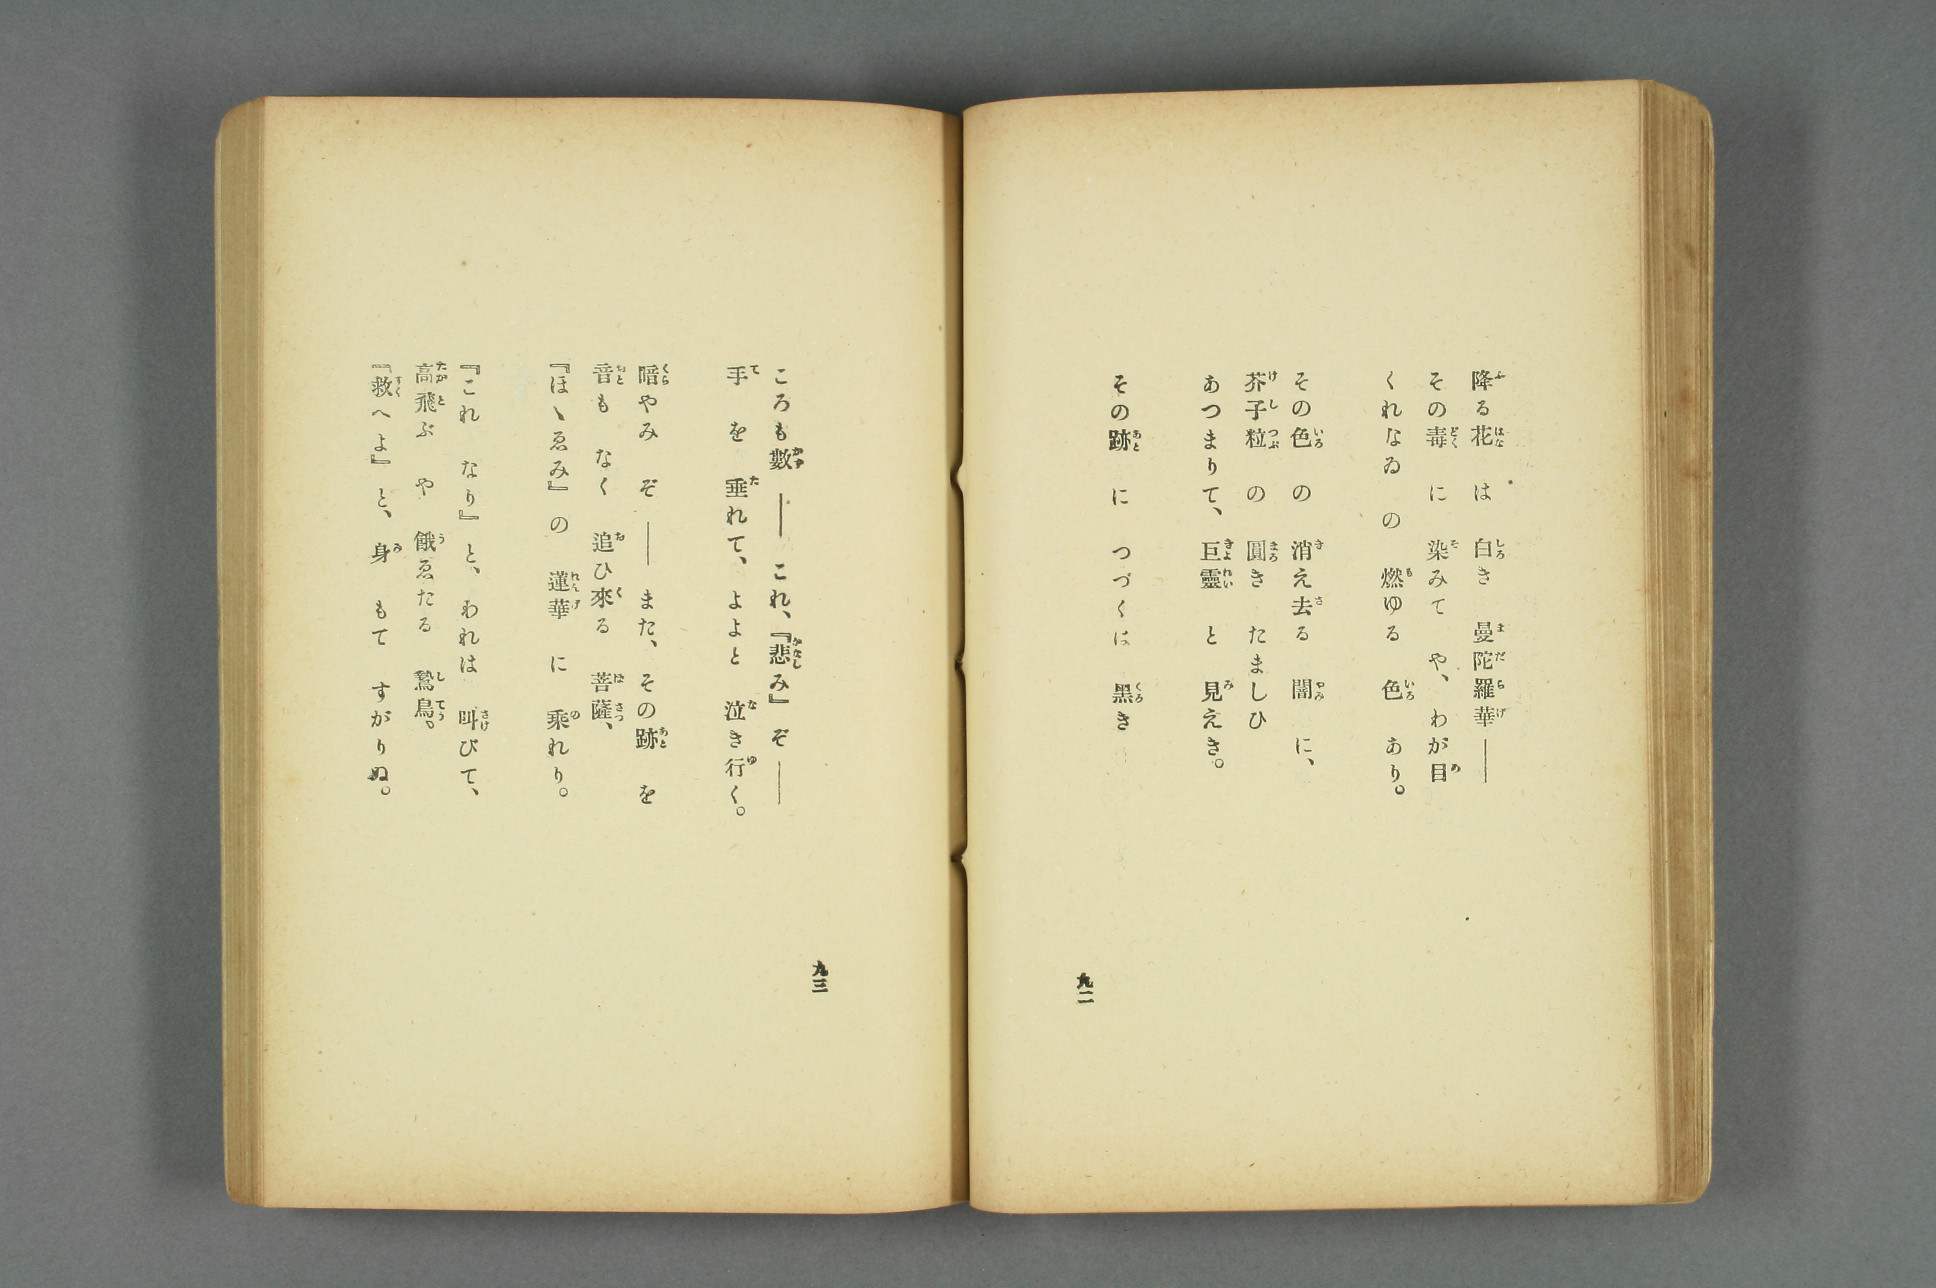 降る花 は 白き 曼陀羅華──
その毒 に 染みて や、わが目
くれなゐ の 燃ゆる 色 あり。
その色 の 消え去る 闇 に、
芥子粒 の 圓き たましひ
あつまりて、巨靈 と 見えき。
その跡 に つづくは 黑き
九二
ころも數 ── これ、『悲み』ぞ──
手 を 垂れて、よよと 泣き行く。
暗やみ ぞ ── また、その跡 を
音も なく 追ひ來る 菩薩、
『ほゝゑみ』の 蓮華 に 乘れり。
『これ なり』と、われは 叫びて、
高飛ぶ や 餓ゑたる 鷙鳥。
『救へよ』と、身 もて すがりぬ。
九三